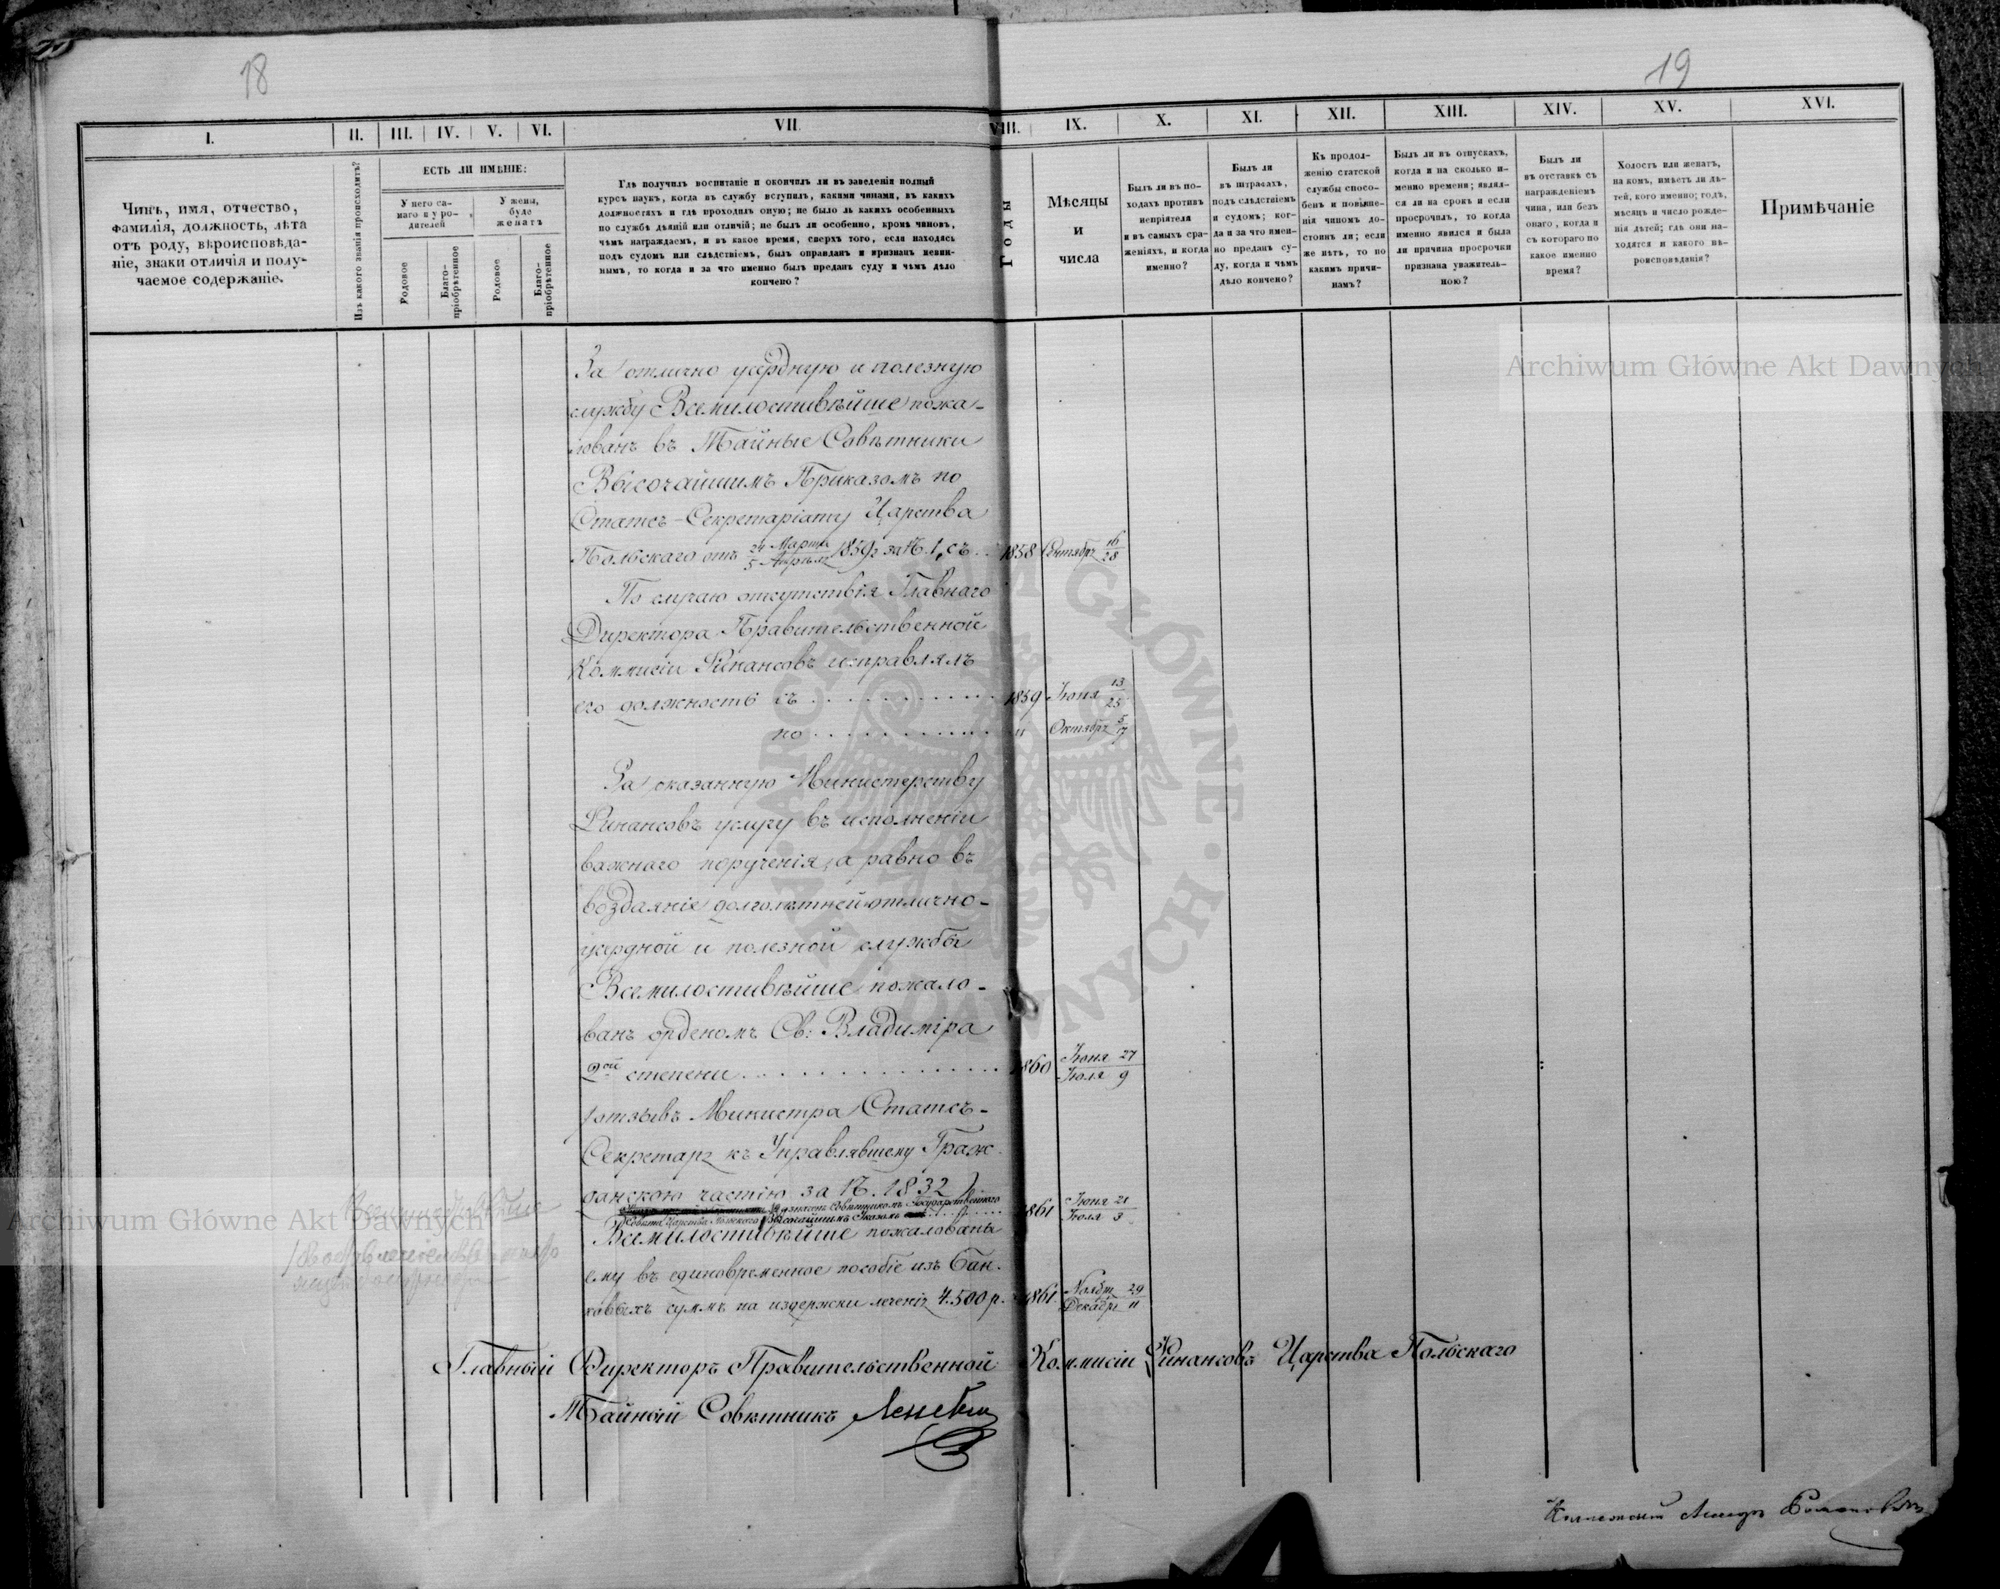 18
19
I.
II.
III.
IV.
V.
VI.
VII.
VIII.
IX.
X.
XI.
XII.
XIII.
XIV.
XV.
XVI.
Чинъ, имя, отчество,
фамилія, должность, лѣта
отъ роду, вѣроисповѣда-
ніе, знаки отличія и полу-
чаемое содержаніе.
Изъ какого званія происходитъ?
ЕСТЬ ЛИ ИМѢНІЕ:
У него са-
маго и у ро-
дителей
У жены,
буде
женатъ
Родовое
Благо-
пріобрѣтенное
Родовое
Благо-
пріобрѣтенное
Гдѣ получилъ воспитаніе и окончилъ ли въ заведеніи полный
курсъ наукъ, когда въ службу вступилъ, какими чинами, въ какихъ
должностяхъ и гдѣ проходилъ оную; не было ль какихъ особенныхъ
по службѣ дѣяній или отличій; не былъ ли особенно, кромѣ чиновъ,
чѣмъ награждаемъ, и въ какое время, сверхъ того, если находясь
подъ судомъ или слѣдствіемъ, былъ оправданъ и признанъ невин-
нымъ, то когда и за что именно былъ преданъ суду и чѣмъ дѣло
кончено?
Годы
Мѣсяцы
и
числа
Былъ ли въ по-
ходахъ противъ
непріятеля
и въ самыхъ сра-
женіяхъ, и когда
именно?
Былъ ли
въ штрафахъ,
подъ слѣдствіемъ
и судомъ; ког-
да и за что имен-
но преданъ су-
ду, когда и чѣмъ
дѣло кончено?
Къ продол-
женію статской
службы спосо-
бенъ и повыше-
нія чиномъ до-
стоинъ ли; если
же нѣтъ, то по
какимъ причи-
намъ?
Былъ ли въ отпускахъ,
когда и на сколько и-
менно времени; являл-
ся ли на срокъ и если
просрочилъ, то когда
именно явился и была
ли причина просрочки
признана уважитель-
ною?
Былъ ли
въ отставкѣ съ
награжденіемъ
чина, или безъ
онаго, когда и
съ котораго по
какое именно
время?
Холостъ или женатъ,
на комъ, имѣетъ ли дѣ-
тей, кого именно; годъ,
мѣсяцъ и число рожде-
нія дѣтей; гдѣ они на-
ходятся и какого вѣ-
роисповѣданія?
Примѣчаніе
За отлично усердную и полезную
службу Всемилостивѣйше пожа-
лованъ въ Тайные Совѣтники
Высочайшимъ Приказомъ по
Статсъ-Секретаріату Царства
Польскаго отъ 24 Марта / 5 Апрѣля 1859г за N. 1, съ . . 1858 Сентябр 16/28
По случаю отсутствія Главнаго
Директора Правительственной
Коммисіи Финансовъ исправлялъ
его должность съ . . . . . . . . . . . 1859 Іюня 13/25
по . . . . . . . . . . . " Октябр 5/17
За оказанную Министерству
Финансовъ услугу въ исполненіи
важнаго порученія, а равно въ
воздаяніе долголѣтней отлично-
усердной и полезной службы
Всемилостивѣйше пожало-
ванъ орденомъ Св: Владиміра
2ой степени . . . . . . . . . . . . . . . 1860 Іюня 27 / Іюля 9
/отзывъ Министра Статсъ-
Секретаря къ Управлявшему Граж-
данскою частію за N. 1832/
Назначенъ Совѣтникомъ Государственнаго
Совѣта Царства Польскаго Высочайшимъ Указомъ . . . . . 1861 Іюня 21 / Іюля 3
Всемилостивѣйше пожалованы
ему въ единовременное пособіе изъ Бан-
ковыхъ суммъ на издержки леченія 4.500 р. 1861 Ноябр 29 / Декабр 11
Главный Директоръ Правительственной Коммисіи Финансовъ Царства Польскаго
Тайный Совѣтникъ
Archiwum Główne Akt Dawnych
Archiwum Główne Akt Dawnych
ARCHIWUM GŁÓWNE AKT DAWNYCH